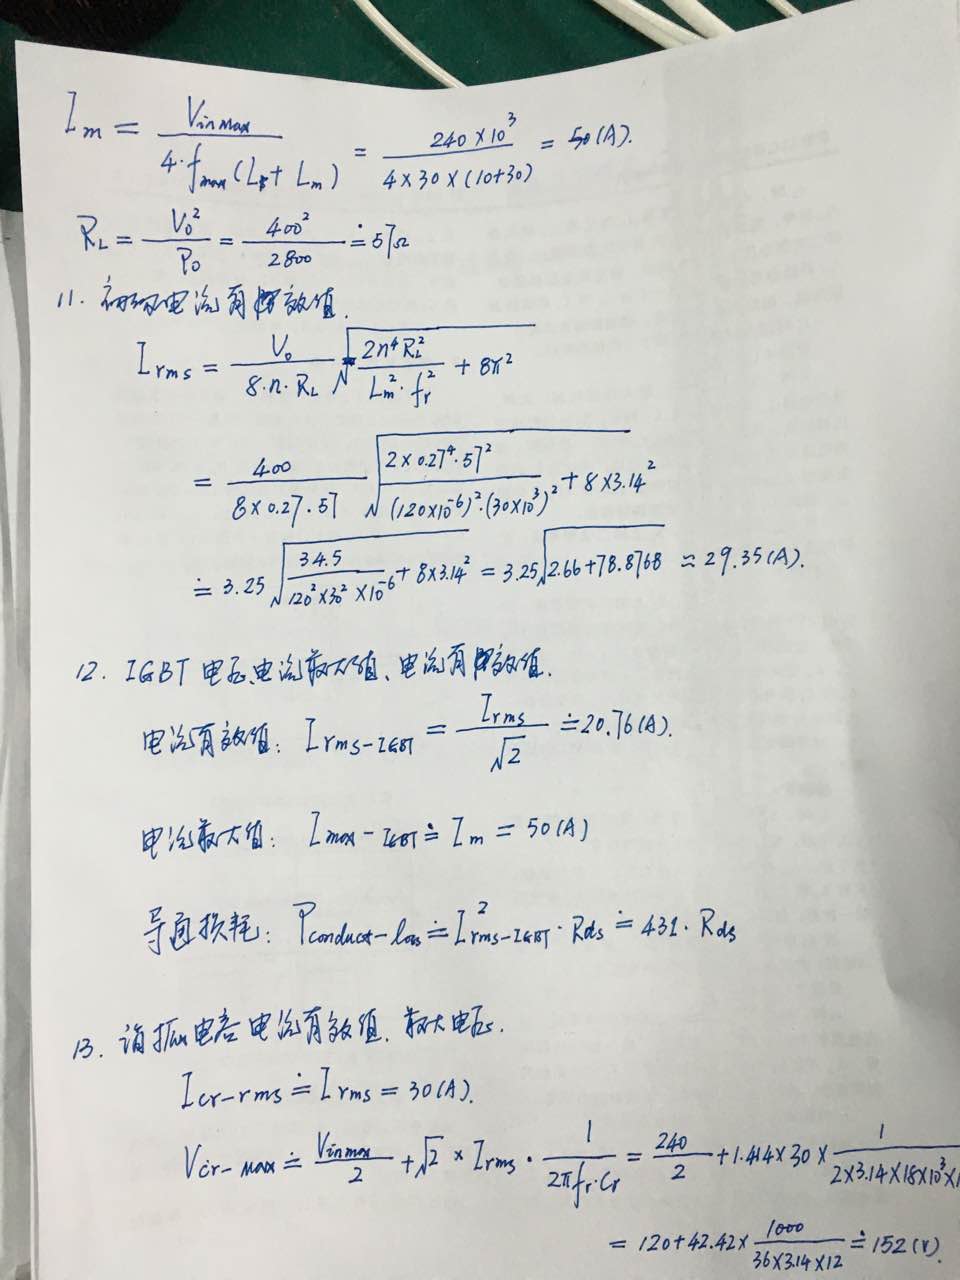 Im = Vinmax / (4·fmax(Ls+Lm)) = 240×10³ / (4×30×(10+30)) = 50(A).
RL = Vo² / Po = 400² / 2800 ≐ 57Ω
11. 初级电流有效值.
Irms = Vo / (8·n·RL) √(2n⁴RL² / (Lm²·fr²) + 8π²)
= 400 / (8×0.27·57) √(2×0.27⁴·57² / ((120×10⁻⁶)²·(30×10³)²) + 8×3.14²)
≐ 3.25√(34.5 / (120²×30²×10⁻⁶) + 8×3.14²) = 3.25√(2.66+78.8768) ≈ 29.35(A).
12. IGBT 电压、电流最大值、电流有效值.
电流有效值: Irms-IGBT = Irms / √2 ≐ 20.76(A).
电流最大值: Imax-IGBT ≐ Im = 50(A)
导通损耗: Pconduct-loss ≐ I²rms-IGBT · Rds ≐ 431·Rds
13. 谐振电容电流有效值、最大电压.
Icr-rms ≐ Irms = 30(A).
Vcr-max ≐ Vinmax / 2 + √2 × Irms · 1 / (2πfr·Cr) = 240 / 2 + 1.414×30× 1 / (2×3.14×18×10³×1
= 120+42.42× 1000 / (36×3.14×12) ≐ 152(V).